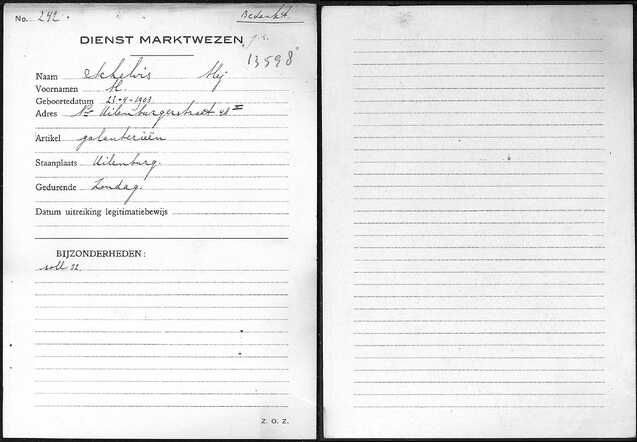 No. 242. Bedankt.
DIENST MARKTWEZEN
13598
Naam Schelvis Mej
Voornamen M.
Geboortedatum 23-4-1903
Adres Nwe Uilenburgerstraat 48 II
Artikel galanterieën
Staanplaats Uilenburg.
Gedurende Zondag.
Datum uitreiking legitimatiebewijs
BIJZONDERHEDEN:
soll 32
Z. O. Z.